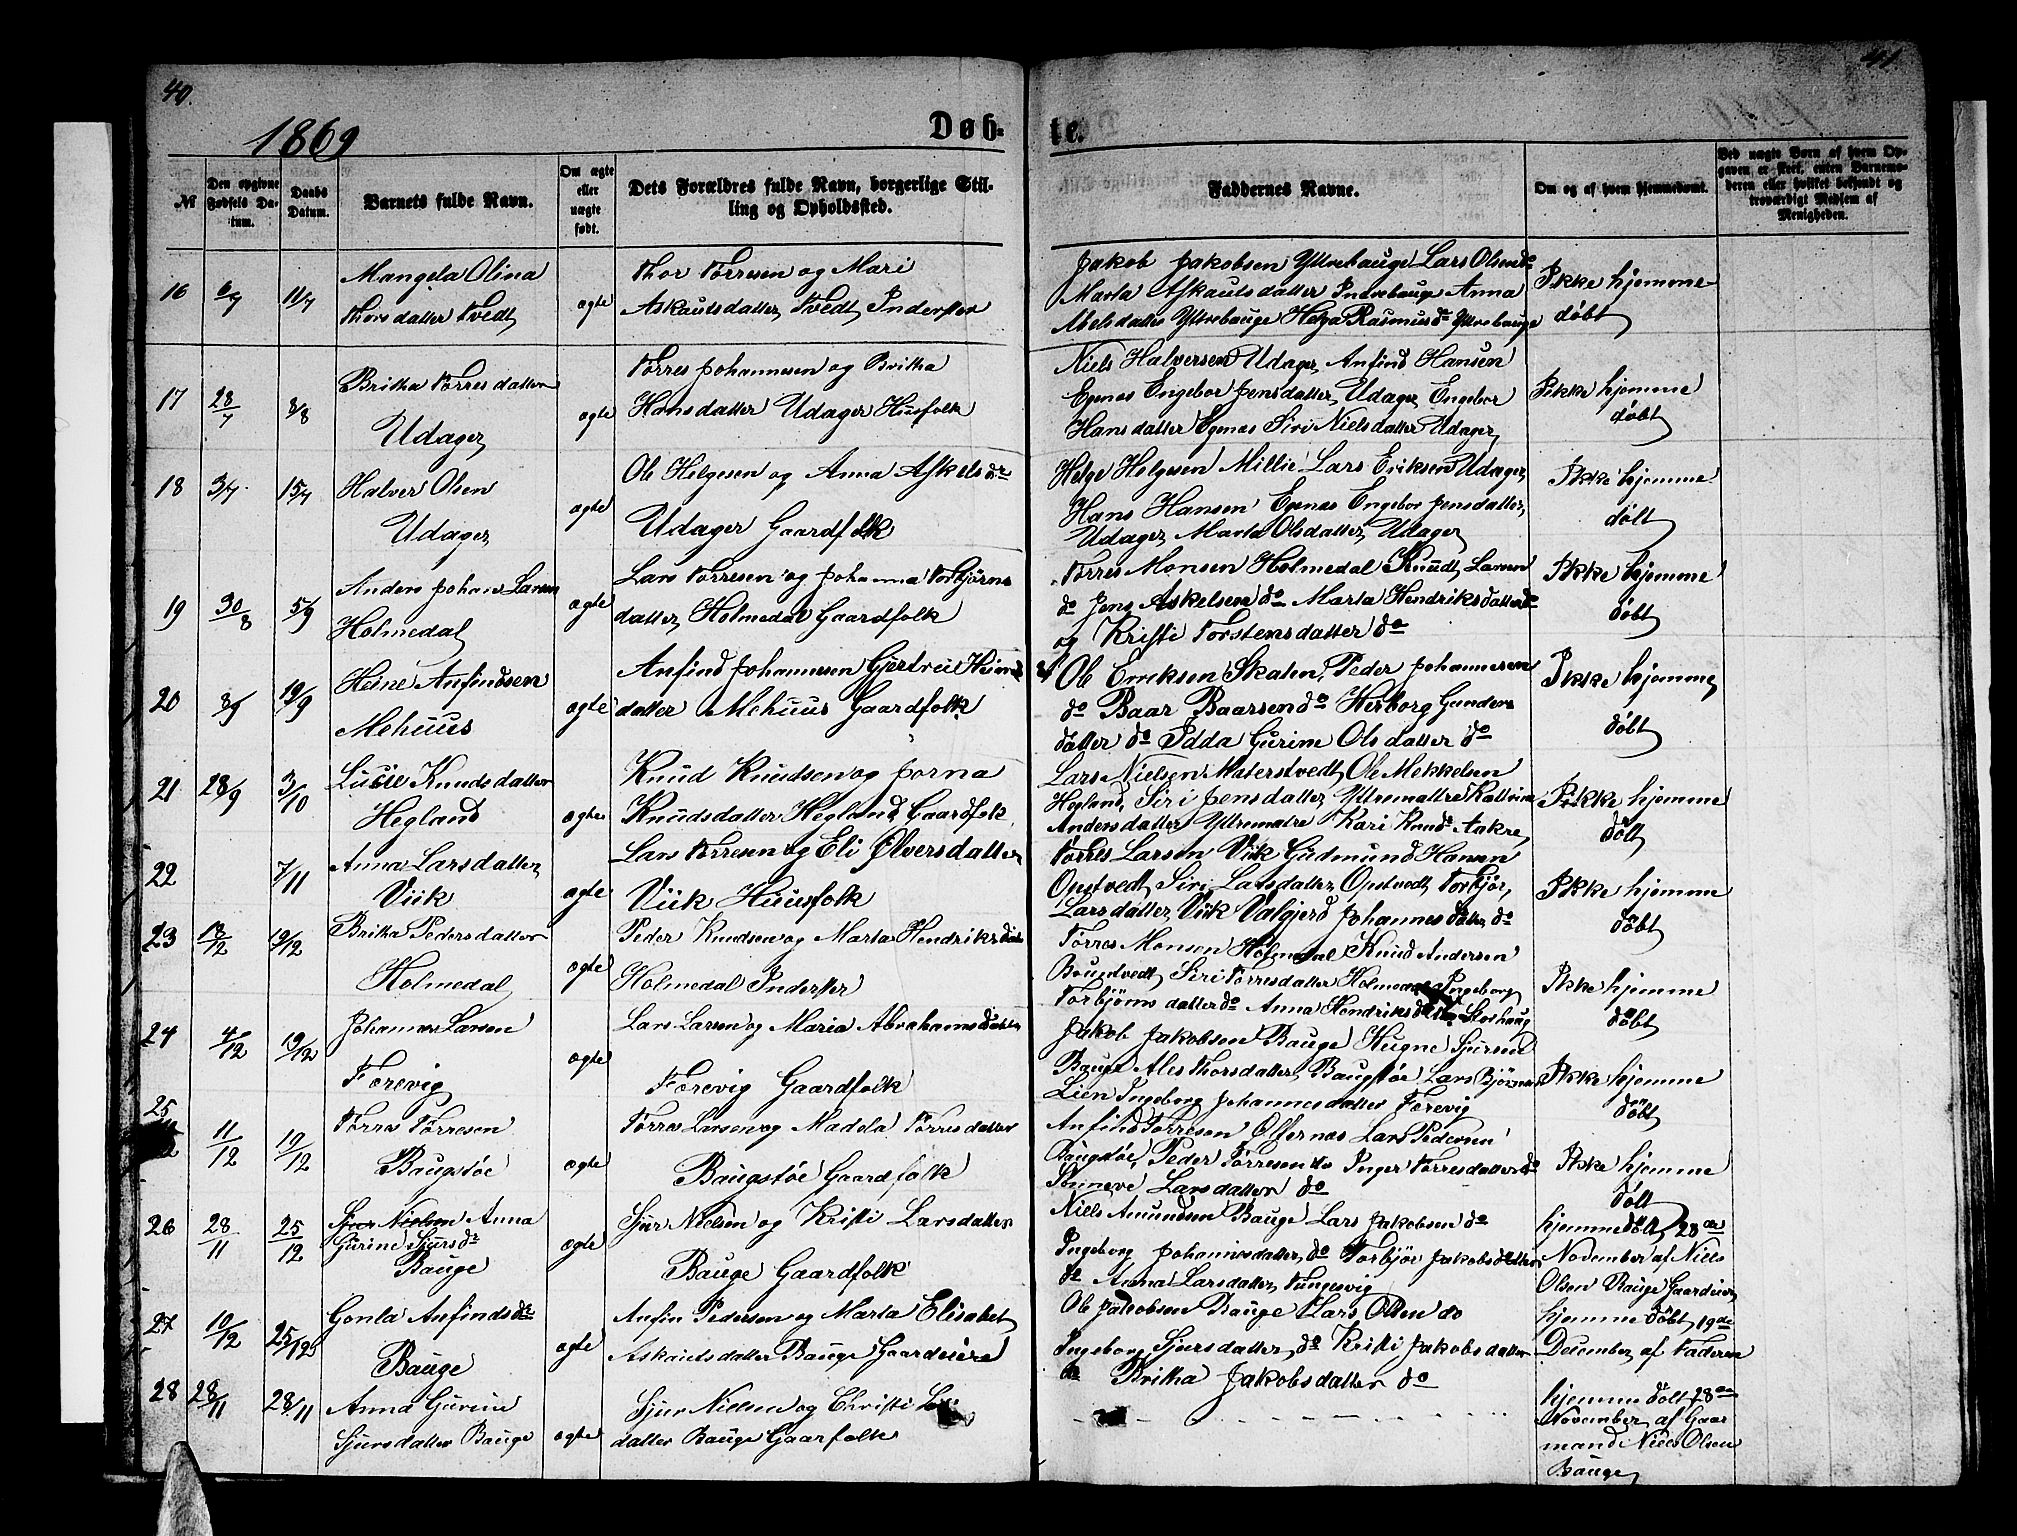 40.
41
1869
Døb-
te.
№
Den opgivne Fødsels Datum.
Daabs Datum.
Barnets fulde Navn.
Om ægte eller uægte født.
Dets Forældres fulde Navn, borgerlige Stilling og Opholdssted.
Faddernes Navne.
Om og af hvem hjemmedøbt.
Ved uægte Børn af hvem Opgaven er skeet, enten Barnemoderen eller hvilket bekjendt og troværdigt Medlem af Menigheden.
16 6/7 11/7
Mangela Olina
Thorsdatter Tvedt
ægte
Thor Tørresen og Mari
Askautsdatter Tvedt Inderster
Jakob Jakobsen Yttrebauge Lars Olsen do
Marta Askautsdatter Indrebauge Anna
Abelsdatter Yttrebauge Helga Rasmusdr Yttrebauge
Ikke hjemme
døbt
17 28/7 8/8
Britha Tørresdatter
Udager
ægte
Tørres Johannesen og Britha
Hansdatter Udager Husfolk
Niels Halversen Udager Anfind Hansen
Egenæs Engebor Jensdatter Udager Engebor
Hansdatter Egenæs Siri Nielsdatter Udager
Ikke hjemme
døbt
18 3/7 15/7
Halver Olsen
Udager
ægte
Ole Helgesen og Anna Askelsdr
Udager Gaardfolk
Helge Helgesen Millie Lars Eriksen Udager
Hans Hansen Egenæs Engebor Jensdatter
Udager Marta Olsdatter Udager
Ikke hjemme
døbt
19 30/8 5/9
Anders Johan Larsen
Holmedal
ægte
Lars Tørresen og Johanna Torbjørns
datter Holmedal Gaardfolk
Tørres Monsen Holmedal Knudt Larsen
do Jens Askelsen do Marta Hendriksdatter do
og Kristi Torstensdatter do
Ikke hjemme
døbt
20 8/9 19/9
Heine Anfindsen
Mehuus
ægte
Anfind Johannesen Gjertrui Heines
datter Mehuus Gaardfolk
Ole Erriksen Skalen Peder Johannesen
do Baar Baarsen do Herborg Gunders
datter do Idda Gurine Olsdatter do
Ikke hjemme
døbt
21 28/9 3/10
Knudsdatter
Hegland
ægte
Knud Knudsen og Jorna
Knudsdatter Hegland Gaardfolk
Lars Nielsen Materstvedt Ole Mekkelsen
Hegland Siri Jensdatter Yttrematre Kattrina
Andersdatter Yttrematre Kari Knudsdr Aakre
Ikke hjemme
døbt
22 7/11
Anna Larsdatter
Viik
ægte
Lars Tørresen og Eli Ølversdatter
Viik Huusfolk
Tørres Larsen Viik Gudmund Hansen
Opstvedt Siri Larsdatter Opstvedt Torbjør
Larsdatter Viik Valgjerd Johannesdatter do
Ikke hjemme
døbt
23 13/12 19/12
Brita Pedersdatter
Holmedal
ægte
Peder Knudsen og Marta Hendriksdatter
Holmedal Inderster
Tørres Monsen Holmedal Knud Andersen
Siri Tørresdatter Holmedal Ingeborg
Torbjørnsdatter do Anna Hendriksdatter Storhaug
Ikke hjemme
døbt
24 4/12 19/12
Johannes Larsen
Førevig
ægte
Lars Larsen og Maria Abrahamsdatter
Førevig Gaardfolk
Jakob Jakobsen Bauge Hugne Sjursen
Bauge Ales Thorsdatter Baugstøe Lars Bjørnsen
Lien Ingeborg Johannesdatter Førevig
Ikke hjemme
døbt
25 11/12 19/12
Tørres Tørresen
Baugstøe
ægte
Tørres Larsen og Madela Tørresdatter
Baugstøe Gaardfolk
Anfind Torresen Ølfernæs Lars Pedersen
Baugstøe Peder Tørresen do Inger Tørresdatter do
Larsdatter do
Ikke hjemme
døbt
26 28/11 25/12
Sjur Nielsen Anna
Gurine Sjursdr
Bauge
ægte
Sjur Nielsen og Kristi Larsdatter
Bauge Gaardfolk
Niels Amundsen Bauge Lars Jakobsen do
Ingeborg Johannesdatter do Torbjør Jakobsdatter
do Anna Larsdatter Tungesvig
hjemmedøbt 28de
November af Niels
Olsen Bauge Gaardeier
27 10/12 25/12
Gonla Anfindsdr
Bauge
ægte
Anfin Pedersen og Marta Elisabet
Askautsdatter Bauge Gaardeiere
Ole Jakobsen Bauge Lars Olsen do
Ingeborg Sjursdatter do Kristi Jakobsdatter
do Britha Jakobsdatter do
hjemme døbt 19de
December af Faderen
28 28/11 28/11
Anna Gurine
Sjursdatter Bauge
ægte
Sjur Nielsen og Christi
datter Bauge Gaarfolk
hjemme døbt 28de
November af Gaar
mand Niels Olsen
Bauge